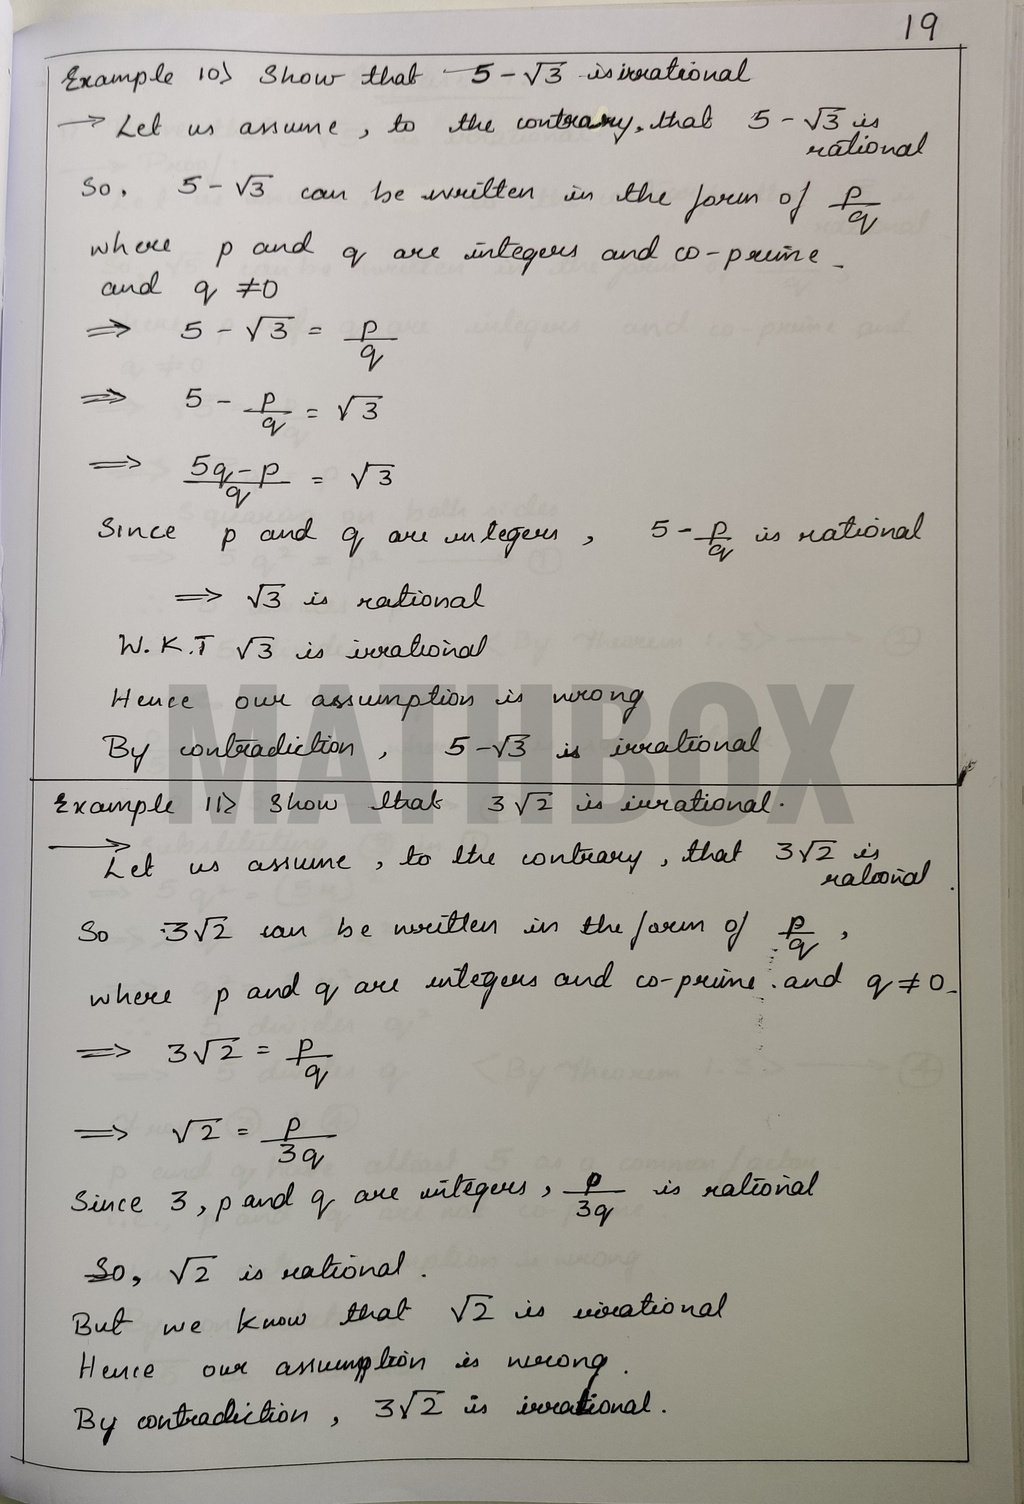 19
Example 10> Show that 5 - √3 is irrational
→ Let us assume, to the contrary, that 5 - √3 is
rational
So, 5 - √3 can be written in the form of p/q
where p and q are integers and co-prime
and q ≠ 0
⇒ 5 - √3 = p/q
⇒ 5 - p/q = √3
⇒ (5q - p)/q = √3
Since p and q are integers, 5 - p/q is rational
⇒ √3 is rational
W.K.T √3 is irrational
Hence our assumption is wrong
By contradiction, 5 - √3 is irrational
MATHBOX
Example 11> Show that 3√2 is irrational.
→ Let us assume, to the contrary, that 3√2 is
rational.
So 3√2 can be written in the form of p/q,
where p and q are integers and co-prime and q ≠ 0
⇒ 3√2 = p/q
⇒ √2 = p/3q
Since 3, p and q are integers, p/3q is rational
So, √2 is rational.
But we know that √2 is irrational
Hence our assumption is wrong.
By contradiction, 3√2 is irrational.